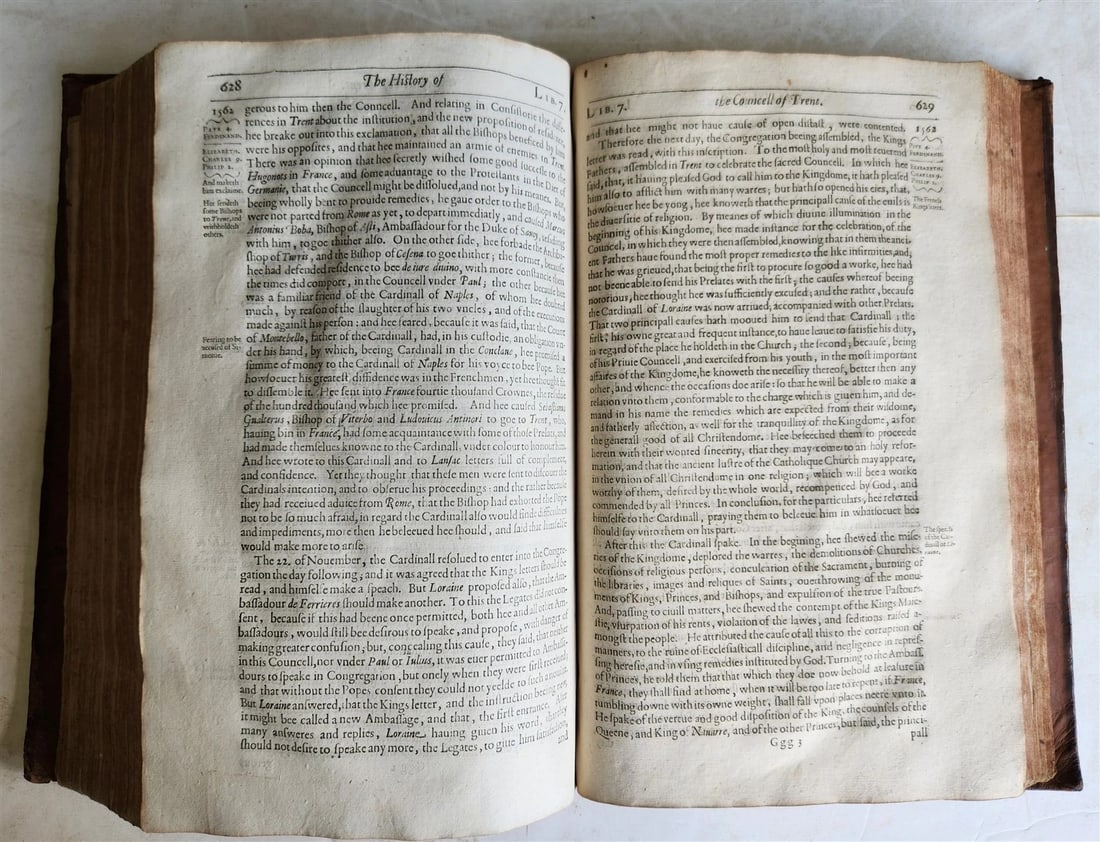 628 The History of LIB. 7.
1562
PIVS 4.
FERDINAND.
ELIZABETH.
CHARLES 9.
PHILIP 2.
And maketh
him exclaime.
He sendeth
some Bishops
to Trent, and
withholdeth
others.
Fearing to be
accused of Si-
monie.
gerous to him then the Conncell. And relating in Consistorie the diffe-
rences in Trent about the institution, and the new proposition of residence,
hee breake out into this exclamation, that all the Bishops beneficed by him
were his opposites, and that he maintained an armie of enemies in Trent.
There was an opinion that hee secretly wished some good successe to the
Hugonots in France, and some aduantage to the Protestants in the Diet of
Germanie, that the Councell might be dissolued, and not by his meanes. But,
beeing wholly bent to prouide remedies, he gaue order to the Bishops who
were not parted from Rome as yet, to depart immediatly, and caused Marcus
Antonius Boba, Bishop of Asti, Ambassadour for the Duke of Sauoy, residing
with him, to goe thither also. On the other side, hee forbade the Archbi-
shop of Turris, and the Bishop of Cesena to goe thither; the former, because
hee had defended residence to bee de iure diuino, with more constancie then
the times did comport, in the Councell vnder Paul; the other because hee
was a familiar friend of the Cardinall of Naples, of whom hee doubted
much, by reason of the slaughter of his two vncles, and of the executions
made against his person: and hee feared, because it was said, that the Count
of Montebello, father of the Cardinall, had, in his custodie, an obligation vn-
der his hand, by which, beeing Cardinall in the Conclaue, hee promised a
summe of money to the Cardinall of Naples for his voyce to bee Pope. But
howsoeuer his greatest diffidence was in the Frenchmen, yet hee thought fit
to dissemble it. Hee sent into France fourtie thousand Crownes, the residue
of the hundred thousand which hee promised. And hee caused Sebastianus
Gualterus, Bishop of Viterbo and Ludouicus Antinori to goe to Trent, who,
hauing bin in France, had some acquaintance with some of those Prelats, and
had made themselues knowne to the Cardinall, vnder colour to honour him.
And hee wrote to this Cardinall and to Lansac letters full of complement,
and confidence. Yet they thought that these men were sent to discouer the
Cardinals intention, and to obserue his proceedings: and the rather because
they had receiued aduice from Rome, that the Bishop had exhorted the Pope
not to be so much afraid, in regard the Cardinall also would finde difficulties
and impediments, more then he beleeued hee should, and said that himselfe
would make more to arise.
The 22. of Nouember, the Cardinall resolued to enter into the Congre-
gation the day following, and it was agreed that the Kings letters should be
read, and himselfe make a speach. But Loraine proposed also, that the Am-
bassadour de Ferrieres should make another. To this the Legates did not con-
sent, because if this had beene once permitted, both hee and all other Am-
bassadours, would still bee desirous to speake, and propose, with danger of
making greater confusion, but, concealing this cause, they said, that neither
in this Councell, nor vnder Paul or Iulius, it was euer permitted to Ambassa-
dours to speake in Congregation, but onely when they were first receiued,
and that without the Popes consent they could not yeelde to such a nouitie.
But Loraine answered, that the Kings letter, and the instruction beeing new,
it might bee called a new Ambassage, and that, the first entrance. After
many answeres and replies, Loraine hauing giuen his word, that they
should not desire to speake any more, the Legates, to giue him satisfaction,
and
LIB. 7. the Councell of Trent. 629
and that hee might not haue cause of open distast, were contented.
Therefore the next day, the Congregation beeing assembled, the Kings
letter was read, with this inscription. To the most holy and most reuerend
Fathers, assembled in Trent to celebrate the sacred Councell. In which hee
said, that, it hauing pleased God to call him to the Kingdome, it hath pleased
him also to afflict him with many warres; but hath so opened his eies, that,
howsoeuer hee be yong, hee knoweth that the principall cause of the euils is
the diuersitie of religion. By meanes of which diuine illumination in the
beginning of his Kingdome, hee made instance for the celebration, of the
Councel, in which they were then assembled, knowing that in them the anci-
ent Fathers haue found the most proper remedies to the like infirmities, and,
that he was grieued, that being the first to procure so good a worke, hee had
not beene able to send his Prelates with the first; the causes whereof beeing
notorious, hee thought hee was sufficiently excused; and the rather, because
the Cardinall of Loraine was now arriued, accompanied with other Prelats.
That two principall causes hath mooued him to send that Cardinall; the
first, his owne great and frequent instance, to haue leaue to satisfie his duty,
in regard of the place he holdeth in the Church; the second; because, being
of his Priuie Councell, and exercised from his youth, in the most important
affaires of the Kingdome, he knoweth the necessity thereof, better then any
other, and whence the occasions doe arise: so that he will be able to make a
relation vnto them, conformable to the charge which is giuen him, and de-
mand in his name the remedies which are expected from their wisdome,
and fatherly affection, as well for the tranquillity of the Kingdome, as for
the generall good of all Christendome. Hee beseeched them to proceede
herein with their wonted sincerity, that they may come to an holy refor-
mation, and that the ancient lustre of the Catholique Church may appeare,
in the vnion of all Christendome in one religion; which will bee a worke
worthy of them, desired by the whole world, recompenced by God, and
commended by all Princes. In conclusion, for the particulars, hee referred
himselfe to the Cardinall, praying them to beleeue him in whatsoeuer hee
should say vnto them on his part.
After this the Cardinall spake. In the begining, hee shewed the mise-
ries of the Kingdome, deplored the warres, the demolitions of Churches,
occisions of religious persons, conculcation of the Sacrament, burning of
the libraries, images and reliques of Saints, ouerthrowing of the monu-
ments of Kings, Princes, and Bishops, and expulsion of the true Pastours.
And, passing to ciuill matters, hee shewed the contempt of the Kings Maie-
stie, vsurpation of his rents, violation of the lawes, and seditions raised a-
mongst the people. He attributed the cause of all this to the corruption of
manners, to the ruine of Ecclesiasticall discipline, and negligence in repres-
sing heresie, and in vsing remedies instituted by God. Turning to the Ambass.
of Princes, he told them that that which they doe now behold at leasure in
France, they shall find at home, when it will be too late to repent, if France,
tumbling downe with its owne weight, shall fall vpon places neere vnto it.
He spake of the vertue and good disposition of the King, the counsels of the
Queene, and King of Nauarre, and of the other Princes, but said, the princi-
Ggg 3 pall
1562
PIVS 4.
FERDINAND.
ELIZABETH.
CHARLES 9.
PHILIP 2.
The French
Kings letter.
The speech
of the Car-
dinall of Lo-
raine.